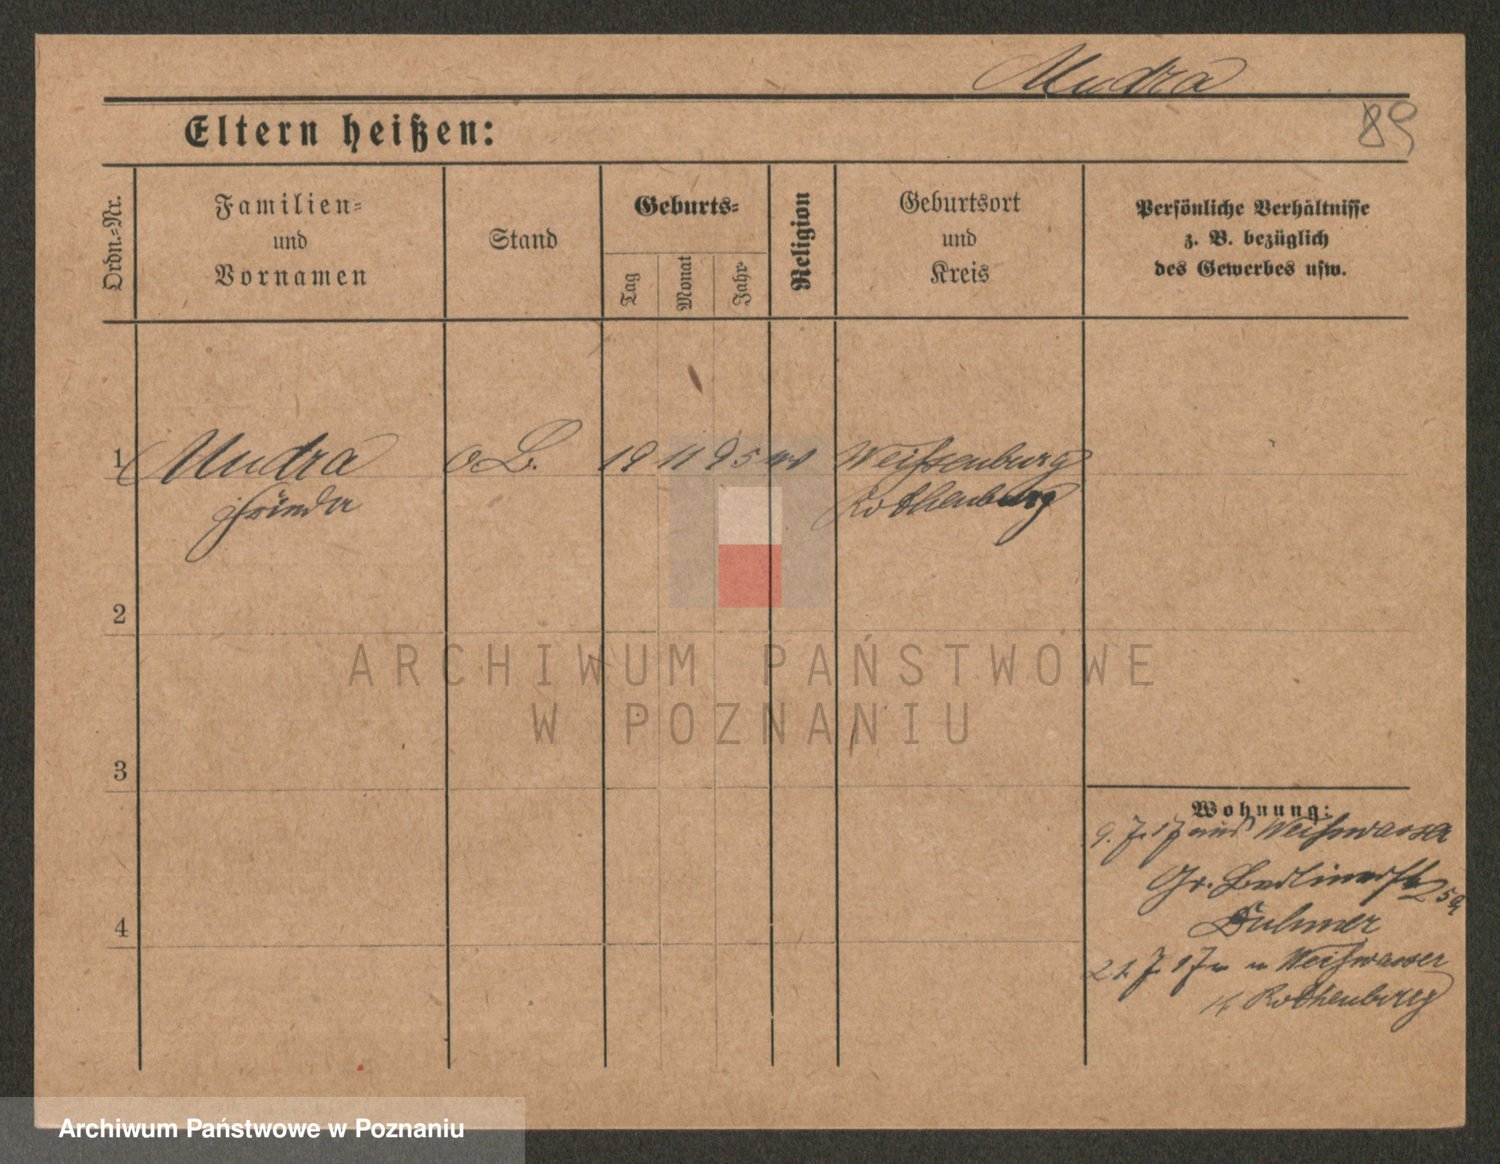 Mudra
89
Eltern heißen:
Ordn.-Nr.
Familien-
und
Vornamen
Stand
Geburts-
Tag
Monat
Jahr
Religion
Geburtsort
und
Kreis
Persönliche Verhältnisse
z. B. bezüglich
des Gewerbes usw.
1 Mudra o.B. 19 11 95 Weissenburg
Frieda Rothenburg
2
3
4
Wohnung:
9. 7. 17 aus Weißwasser
Gr. Berlinerstr
21. 7. 17 n Weißwasser
Rothenburg
ARCHIWUM PAŃSTWOWE
W POZNANIU
Archiwum Państwowe w Poznaniu